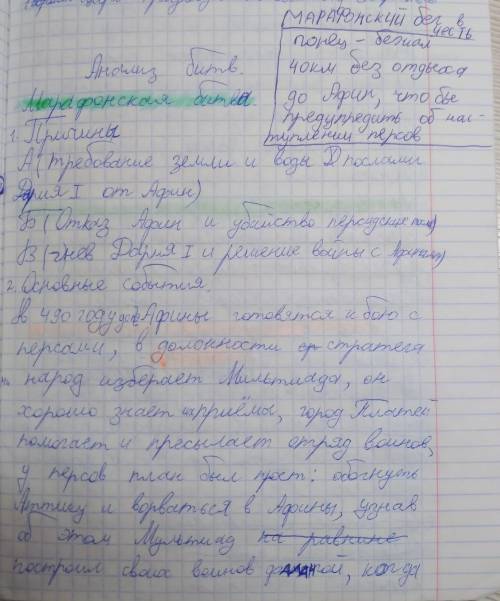 МАРАФОНСКИЙ бег в
честь
гонец - бежал
40км без отдыха
до Афин, что бы
предупредить об нас-
туплении персов
Анализ битв.
Марафонская битва.
1. Причины
А (требование земли и воды послами
Дария I от Афин)
Б (Отказ Афин и убийство персидских)
В (гнев Дария I и решение войны с)
2. Основные события.
в 490 году Афины готовятся к бою с
персами, в должности стратега
народ избирает Мильтиада, он
хорошо знает приёмы, город Платеи
помогает и присылает отряд воинов,
у персов план был прост: обогнуть
Аттику и ворваться в Афины, узнав
об этом Мультиад на равнине
построил своих воинов фалангой, когда